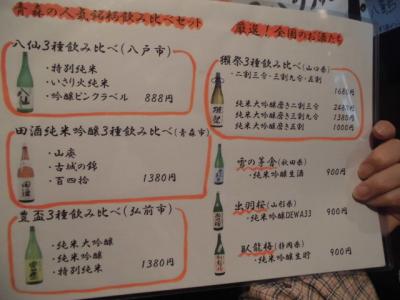 青森の人気銘柄飲み比べセット
八仙3種飲み比べ(八戸市)
・特別純米
・いさり火純米
・吟醸ピンクラベル 888円
田酒純米吟醸3種飲み比べ(青森市)
・山廃
・古城の錦
・百四拾 1380円
豊盃3種飲み比べ(弘前市)
・純米大吟醸
・純米吟醸
・特別純米 1380円
厳選!全国のお酒たち
獺祭3種飲み比べ(山口県)
・二割三分・三割九分・五割
1680円
純米大吟醸磨き二割三分 2480円
純米大吟醸磨き三割九分 1380円
純米大吟醸磨き五割 1000円
雪の茅舎(秋田県)
・純米吟醸生酒 900円
出羽桜(山形県)
・純米吟醸DEWA33 900円
臥龍梅(静岡県)
・純米吟醸生貯 900円